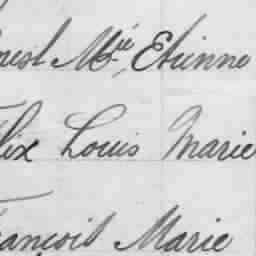 nest Mie, Etienne
lix Louis Marie
ançois Marie